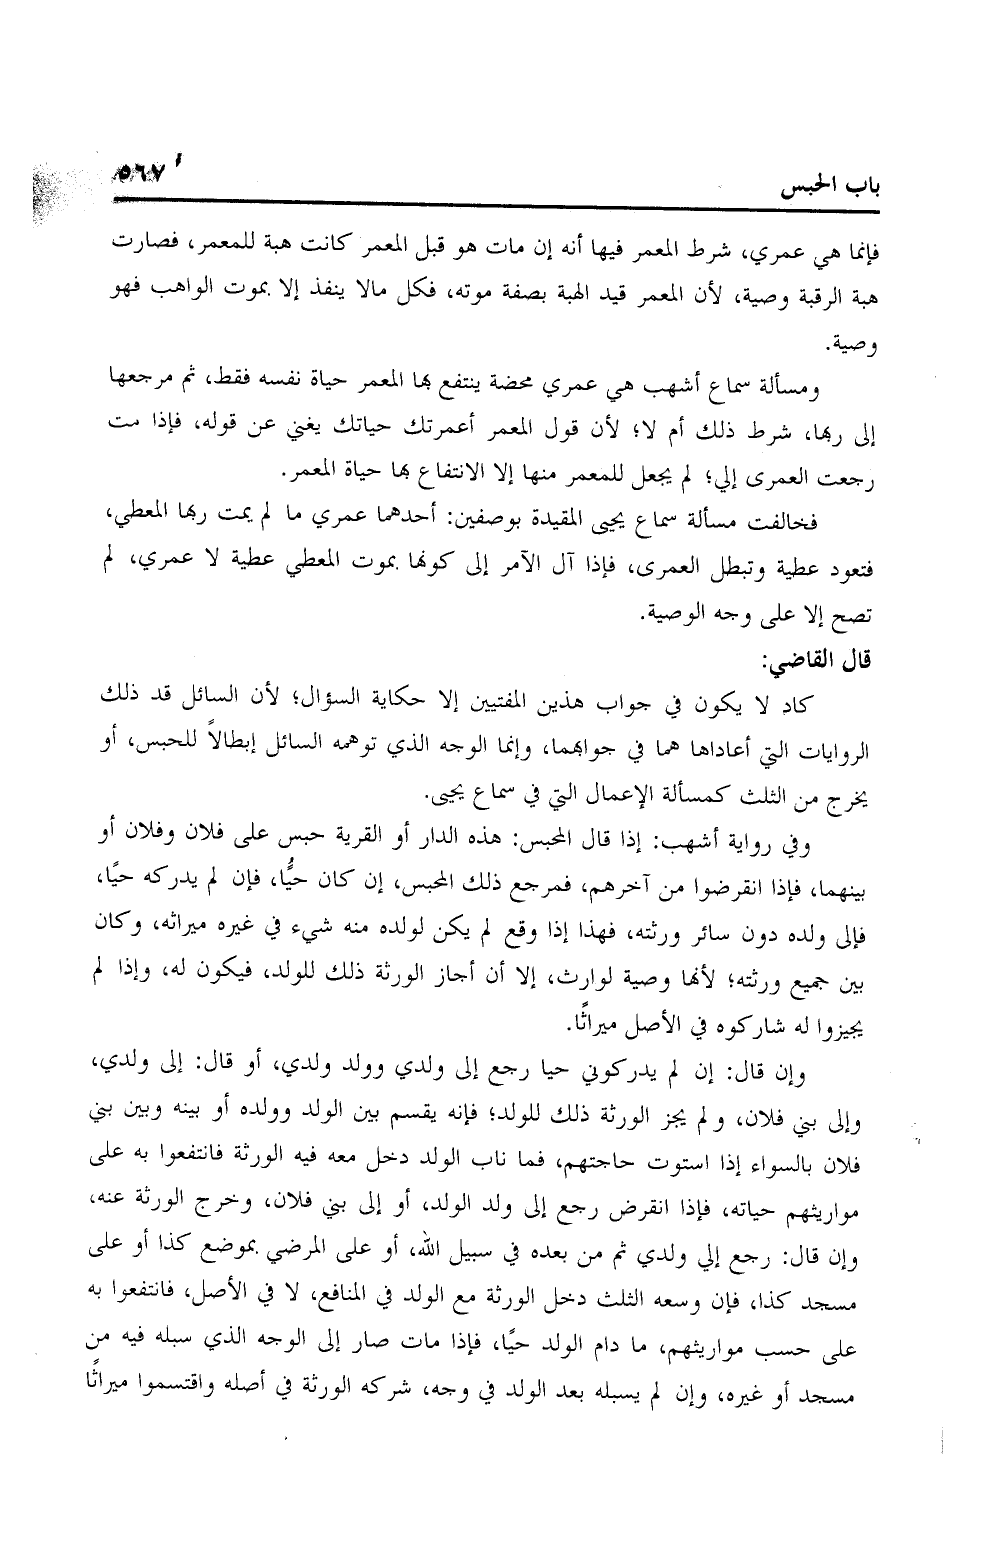 باب الحبس ٥٦٧
فإنما هي عمري، شرط المعمر فيها أنه إن مات هو قبل المعمر كانت هبة للمعمر، فصارت
هبة الرقبة وصية، لأن المعمر قيد الهبة بصفة موته، فكل مالا ينفذ إلا بموت الواهب فهو
وصية.
ومسألة سماع أشهب هي عمري محضة ينتفع بها المعمر حياة نفسه فقط، ثم مرجعها
إلى ربها، شرط ذلك أم لا؛ لأن قول المعمر أعمرتك حياتك يغني عن قوله، فإذا مت
رجعت العمرى إلي؛ لم يجعل للمعمر منها إلا الانتفاع بها حياة المعمر.
فخالفت مسألة سماع يحيى المقيدة بوصفين: أحدهما عمري ما لم يمت ربها المعطي،
فتعود عطية وتبطل العمرى، فإذا آل الآمر إلى كونها بموت المعطي عطية لا عمري، لم
تصح إلا على وجه الوصية.
قال القاضي:
كاد لا يكون في جواب هذين المفتيين إلا حكاية السؤال؛ لأن السائل قد ذلك
الروايات التي أعاداها هما في جوابهما، وإنما الوجه الذي توهمه السائل إبطالاً للحبس، أو
يخرج من الثلث كمسألة الإعمال التي في سماع يحيى.
وفي رواية أشهب: إذا قال المحبس: هذه الدار أو القرية حبس على فلان وفلان أو
بينهما، فإذا انقرضوا من آخرهم، فمرجع ذلك المحبس، إن كان حيًّا، فإن لم يدركه حيًا،
فإلى ولده دون سائر ورثته، فهذا إذا وقع لم يكن لولده منه شيء في غيره ميراثه، وكان
بين جميع ورثته؛ لأنها وصية لوارث، إلا أن أجاز الورثة ذلك للولد، فيكون له، وإذا لم
يجيزوا له شاركوه في الأصل ميراثًا.
وإن قال: إن لم يدركوني حيا رجع إلى ولدي وولد ولدي، أو قال: إلى ولدي،
وإلى بني فلان، ولم يجز الورثة ذلك للولد؛ فإنه يقسم بين الولد وولده أو بينه وبين بني
فلان بالسواء إذا استوت حاجتهم، فما ناب الولد دخل معه فيه الورثة فانتفعوا به على
مواريثهم حياته، فإذا انقرض رجع إلى ولد الولد، أو إلى بني فلان، وخرج الورثة عنه،
وإن قال: رجع إلي ولدي ثم من بعده في سبيل الله، أو على المرضي بموضع كذا أو على
مسجد كذا، فإن وسعه الثلث دخل الورثة مع الولد في المنافع، لا في الأصل، فانتفعوا به
على حسب مواريثهم، ما دام الولد حيًا، فإذا مات صار إلى الوجه الذي سبله فيه من
مسجد أو غيره، وإن لم يسبله بعد الولد في وجه، شركه الورثة في أصله واقتسموا ميراثًا